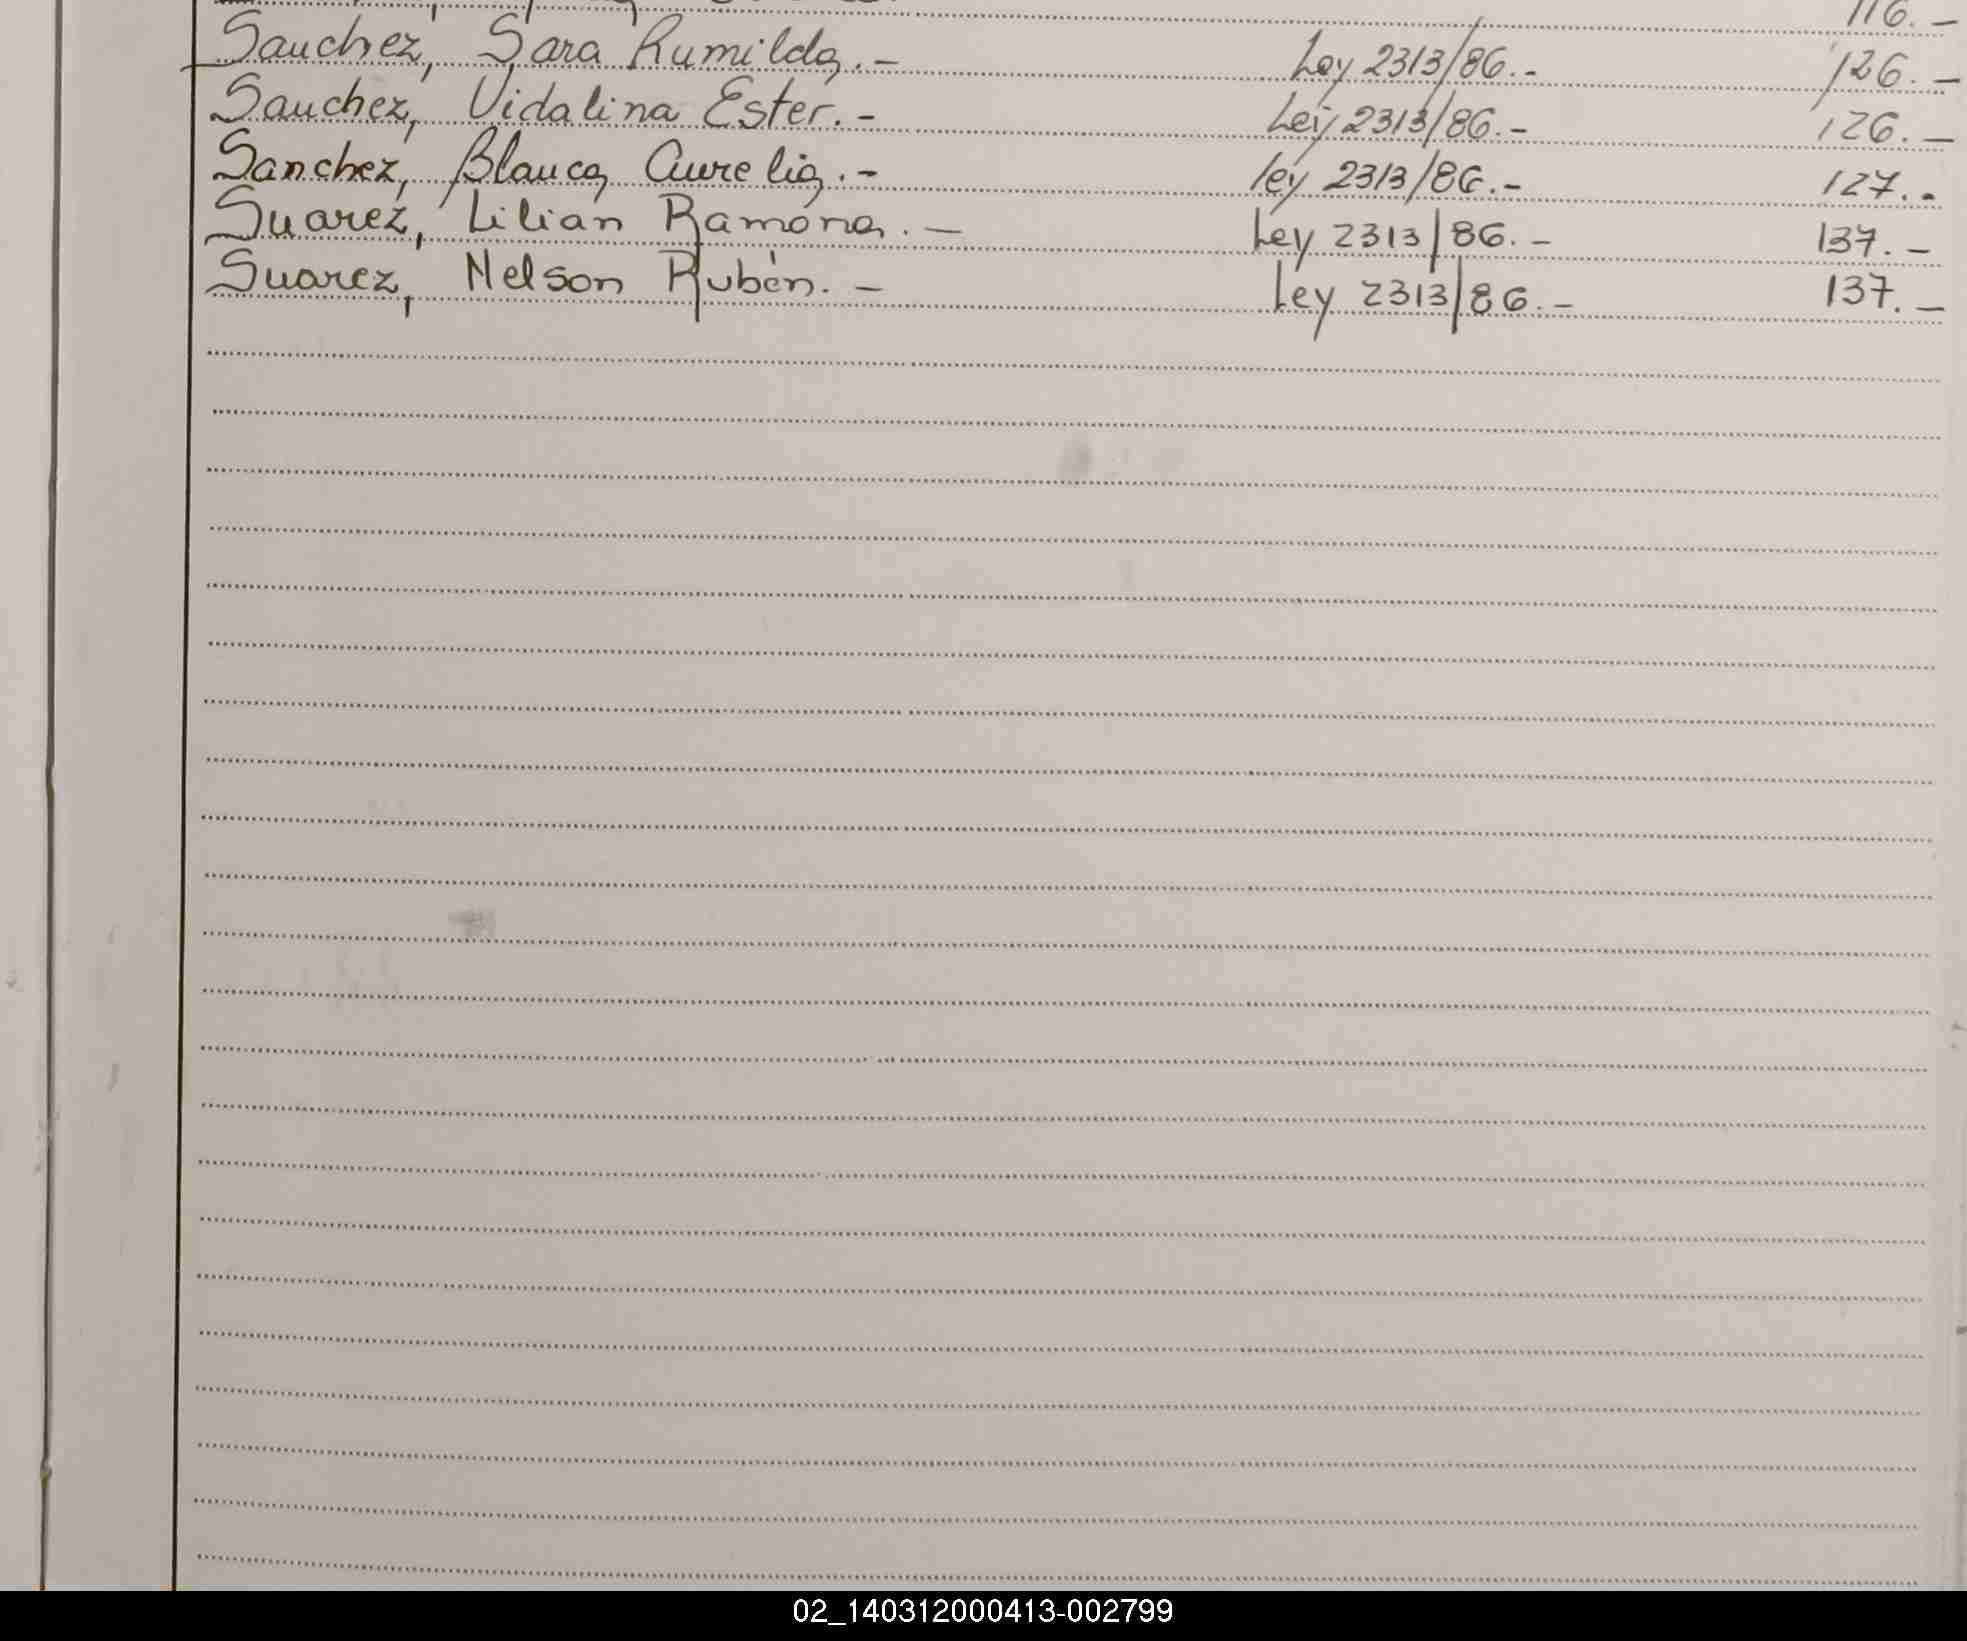 116.-
Sanchez, Sara Rumilda.- Ley 2313/86.- 126.-
Sanchez, Vidalina Ester.- Ley 2313/86.- 126.-
Sanchez, Blanca Aurelia.- ley 2313/86.- 127.-
Suarez, Lilian Ramona.- Ley 2313/86.- 137.-
Suarez, Nelson Rubén.- Ley 2313/86.- 137.-
02_140312000413-002799